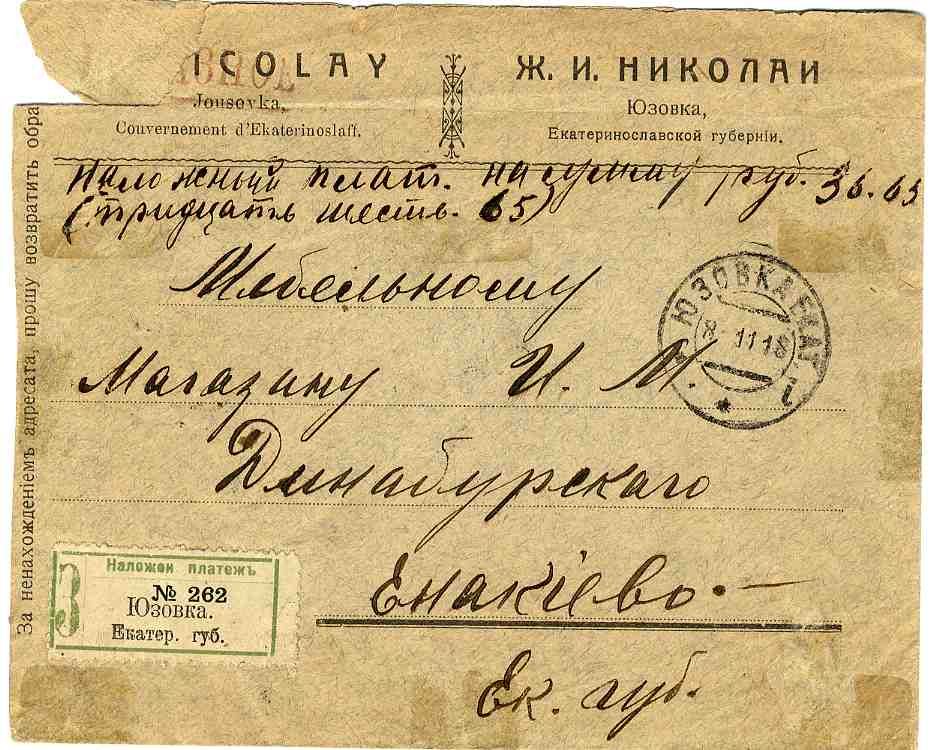 ICOLAY
Jousovka,
Gouvernement d'Ekaterinoslaff.
Ж. И. НИКОЛАИ
Юзовка,
Екатеринославской губерніи.
Наложный плат. на сумму руб. 36.65
(тридцать шесть. 65)
Мебельному
Магазину И. М.
Динабурскаго
Енакіево.
Ек. губ.
ЮЗОВКА ЕКАТ
8 11 16
З
Наложен платежъ
№ 262
Юзовка.
Екатер. губ.
За ненахожденіемъ адресата, прошу возвратить обра